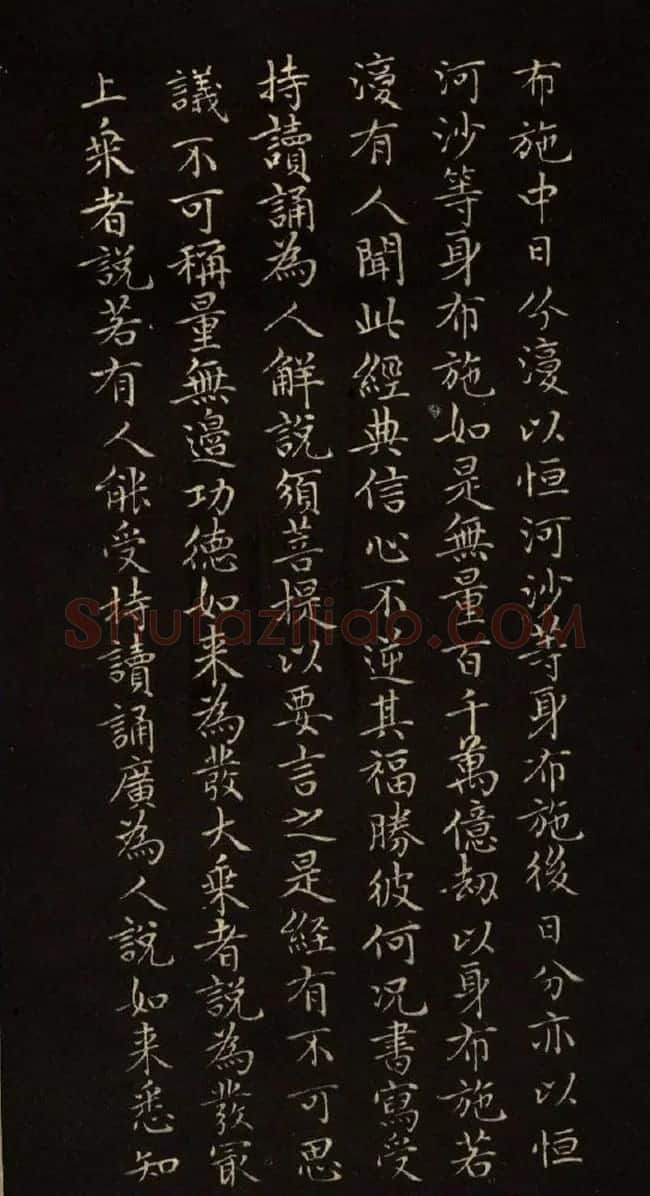 布施中日分濅以恒河沙等身布施後日分亦以恒
河沙等身布施如是無量百千萬億劫以身布施若
濅有人聞此經典信心不逆其福勝彼何況書寫受
持讀誦為人解說須菩提以要言之是經有不可思
議不可稱量無邊功德如来為發大乗者說為發冣
上乗者說若有人能受持讀誦廣為人說如来悉知
Shufaziliao.COM